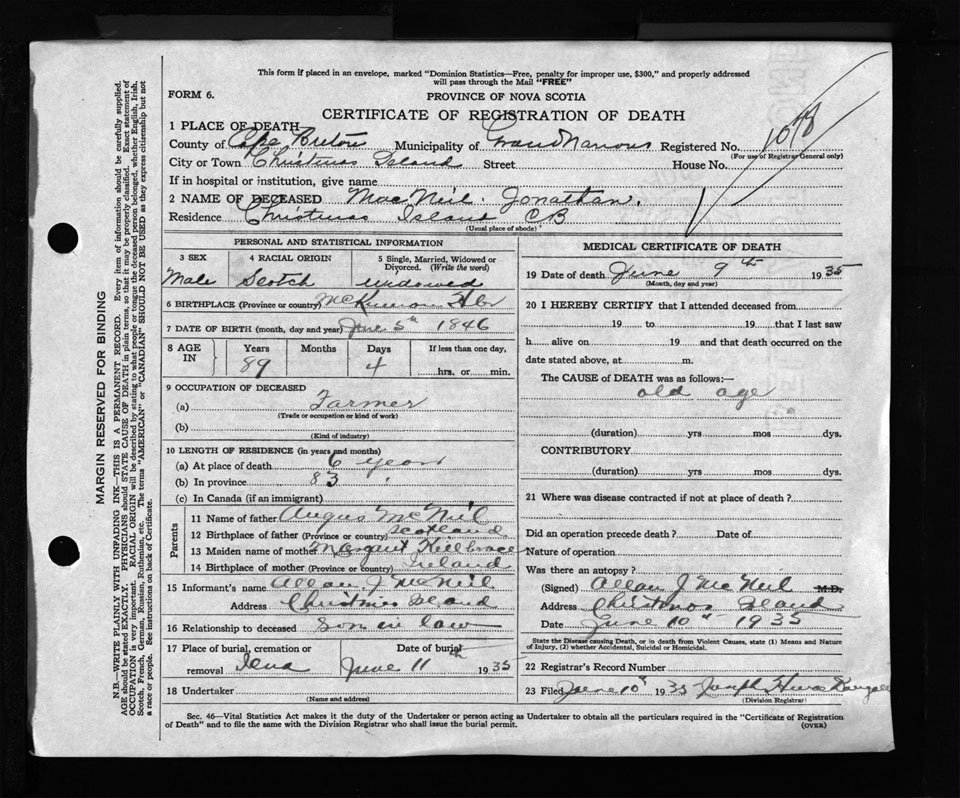 This form if placed in an envelope, marked "Dominion Statistics—Free, penalty for improper use, $300," and properly addressed
will pass through the Mail "FREE"
FORM 6.
PROVINCE OF NOVA SCOTIA
CERTIFICATE OF REGISTRATION OF DEATH
1 PLACE OF DEATH—
County of Cape Breton Municipality of Grand Narrows Registered No.
(For use of Registrar General only)
City or Town Christmas Island Street House No.
If in hospital or institution, give name
2 NAME OF DECEASED MacNeil Jonathan.
Residence Christmas Island CB
(Usual place of abode)
PERSONAL AND STATISTICAL INFORMATION
3 SEX 4 RACIAL ORIGIN 5 Single, Married, Widowed or Divorced. (Write the word)
Male Scotch widowed
6 BIRTHPLACE (Province or country) McKinnon Hbr
7 DATE OF BIRTH (month, day and year) June 5th 1846
8 AGE IN Years Months Days If less than one day,
89 4 hrs. or min.
9 OCCUPATION OF DECEASED
(a) Farmer
(Trade or occupation or kind of work)
(b)
(Kind of industry)
10 LENGTH OF RESIDENCE (in years and months)
(a) At place of death 6 years
(b) In province 83
(c) In Canada (if an immigrant)
Parents
11 Name of father Angus McNeil
12 Birthplace of father (Province or country) Scotland
13 Maiden name of mother Margaret
14 Birthplace of mother (Province or country) Ireland
15 Informant's name Allan J McNeil
Address Christmas Island
16 Relationship to deceased Son in law
17 Place of burial, cremation or removal Iona
Date of burial June 11th 1935
18 Undertaker
(Name and address)
MEDICAL CERTIFICATE OF DEATH
19 Date of death June 9th 1935
(Month, day and year)
20 I HEREBY CERTIFY that I attended deceased from
19 to 19 that I last saw
h alive on 19 and that death occurred on the
date stated above, at m.
The CAUSE of DEATH was as follows:—
old age
(duration) yrs mos dys.
CONTRIBUTORY
(duration) yrs mos dys.
21 Where was disease contracted if not at place of death?
Did an operation precede death? Date of
Nature of operation
Was there an autopsy?
(Signed) Allan J McNeil M.D.
Address Christmas Island
Date June 10th 1935
State the Disease causing Death, or in death from Violent Causes, state (1) Means and Nature
of Injury, (2) whether Accidental, Suicidal or Homicidal.
22 Registrar's Record Number
23 Filed June 10th 1935 Joseph
(Division Registrar)
Sec. 46—Vital Statistics Act makes it the duty of the Undertaker or person acting as Undertaker to obtain all the particulars required in the "Certificate of Registration
of Death" and to file the same with the Division Registrar who shall issue the burial permit.
MARGIN RESERVED FOR BINDING
N.B.—WRITE PLAINLY WITH UNFADING INK—THIS IS A PERMANENT RECORD. Every item of information should be carefully supplied.
AGE should be stated EXACTLY. PHYSICIANS should STATE CAUSE OF DEATH in plain terms, so that it may be properly classified. Exact statement of
OCCUPATION is very important. RACIAL ORIGIN will be described by stating to what people or tongue the deceased person belonged, whether English, Irish,
Scotch, French, German, Russian, Ruthenian, etc. The terms "AMERICAN" or "CANADIAN" SHOULD NOT BE USED as they express citizenship but not
a race or people. See instructions on back of Certificate.